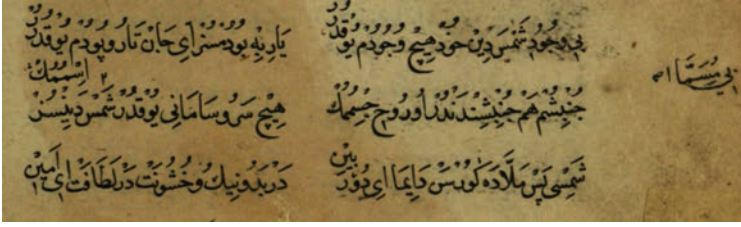 بى وجودِ شمس دين خود هيچ وجودم يوقدر ياريه بودمسز اى جان تار و پودم يوقدر
جنبشم هم جنبشندندر اول روح جسممك هيچ سر و سامانى يوقدر شمس دينسز اسممك
شمسى پس ملّاده كورسن دايما اى دوربين در بد و نيك و خشونت در لطافت اى امين
بى مسمّا